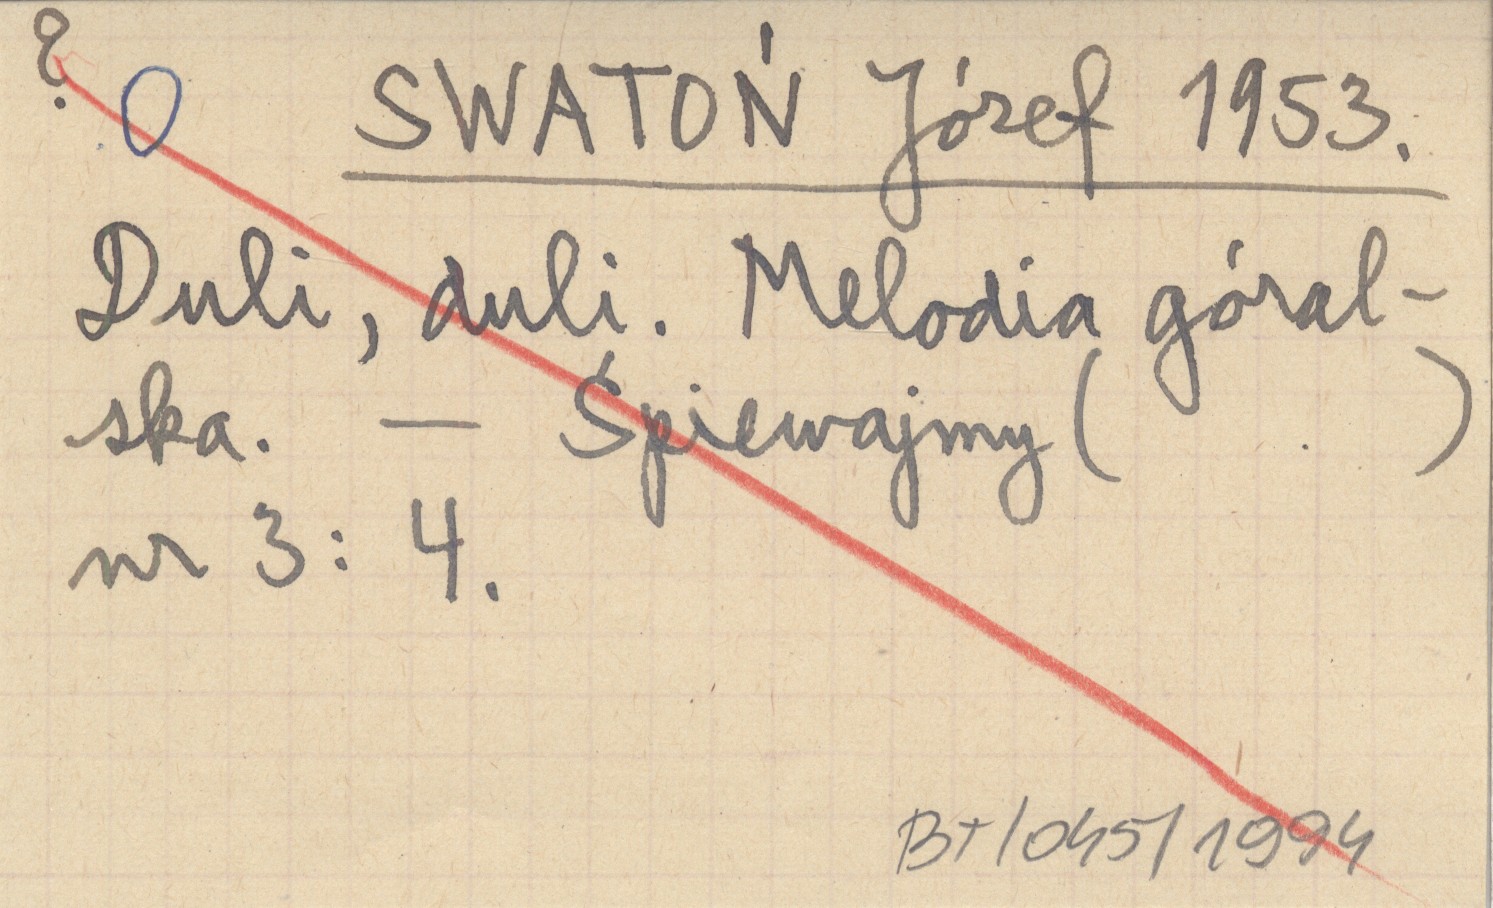 ?
0
SWATOŃ Józef 1953.
Duli, duli. Melodia góral-
ska. — Śpiewajmy ( . )
nr 3: 4.
BT/045/1994